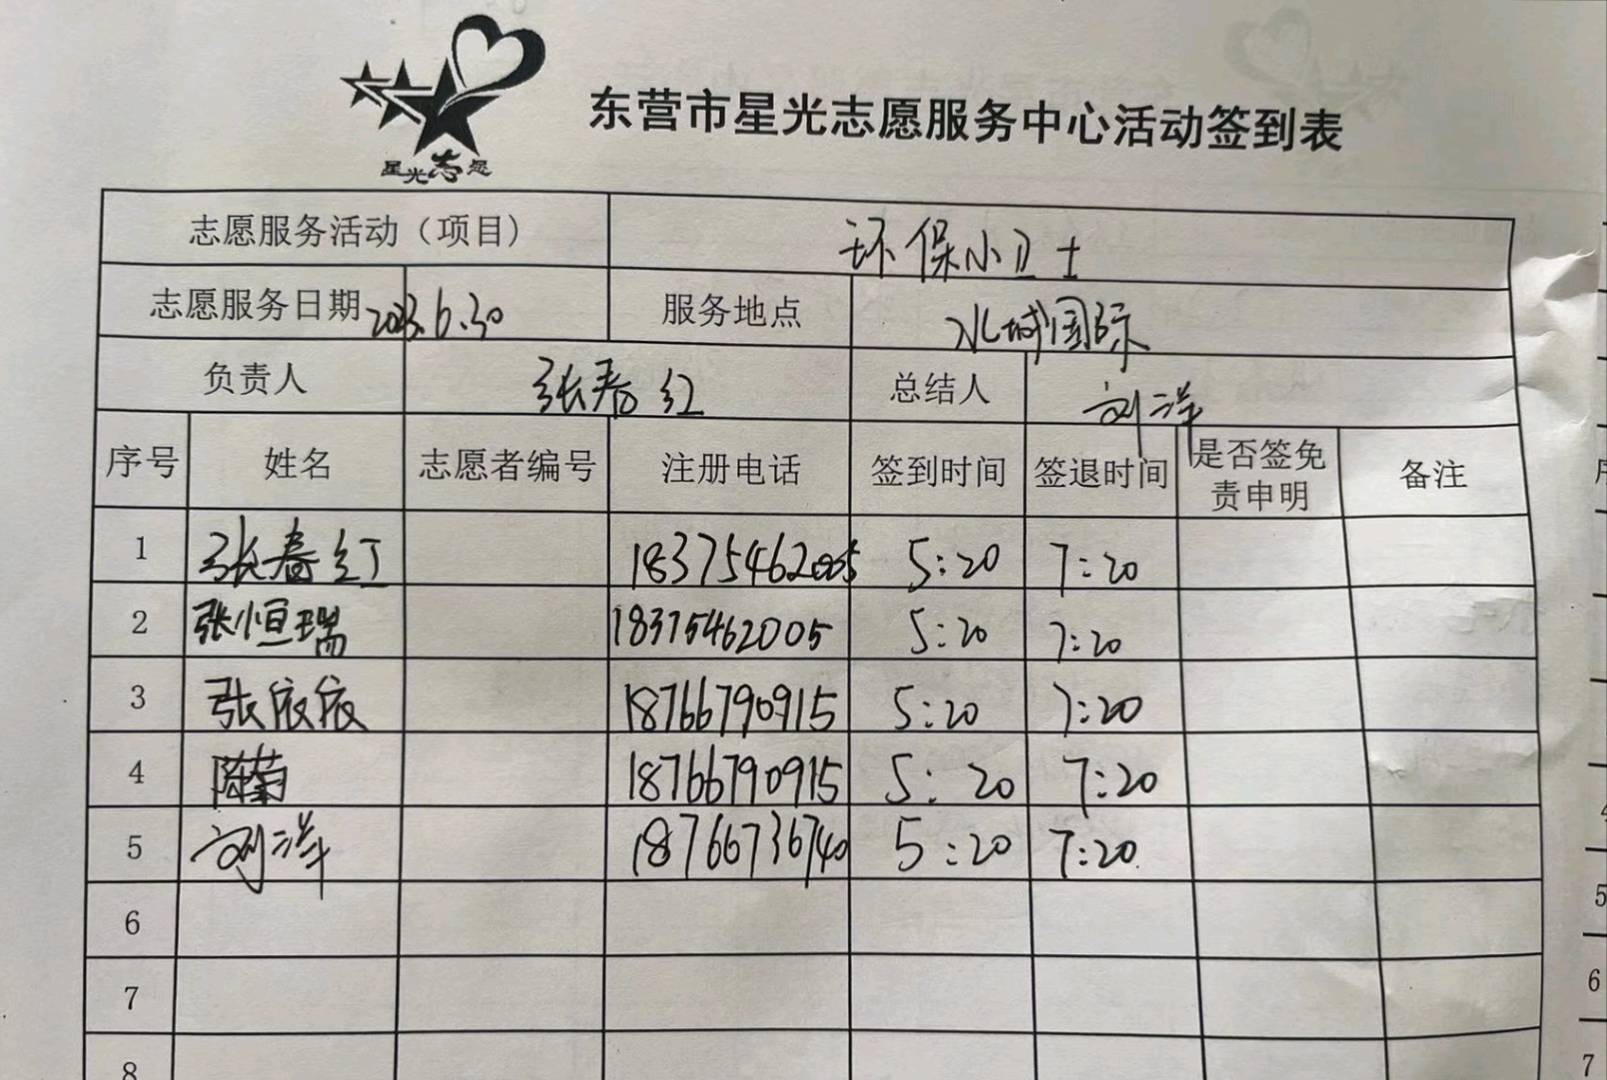 星光志愿
东营市星光志愿服务中心活动签到表
志愿服务活动（项目） 环保小卫士
志愿服务日期 2023.6.30 服务地点 水城国际
负责人 张春红 总结人 刘洋
序号 姓名 志愿者编号 注册电话 签到时间 签退时间 是否签免责申明 备注
1 张春红 18375462005 5:20 7:20
2 张恒瑞 18375462005 5:20 7:20
3 张依依 18766790915 5:20 7:20
4 陈菊 18766790915 5:20 7:20
5 刘洋 18766736740 5:20 7:20
6
7
8
5
6
7